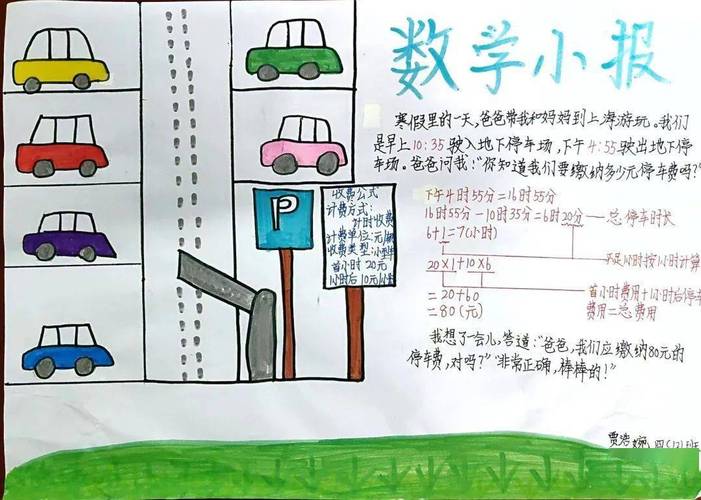 数学小报
寒假里的一天,爸爸带我和妈妈到上海游玩。我们
是早上10:35驶入地下停车场,下午4:55驶出地下停
车场。爸爸问我:“你知道我们要缴纳多少元停车费吗?”
下午4时55分=16时55分
16时55分-10时35分=6时20分——总停车时长
6+1=7(小时)
不足1小时按1小时计算
20×1+10×6
=20+60
=80(元)
首小时费用+1小时后停车
费用=总费用
我想了一会儿,答道:“爸爸,我们应缴纳80元的
停车费,对吗?”“非常正确,棒棒的!”
P
收费公式
计费方式:
计时收费
计费单位:元/
收费类型:小型车
首小时20元
1小时后10元/小时
四(12)班